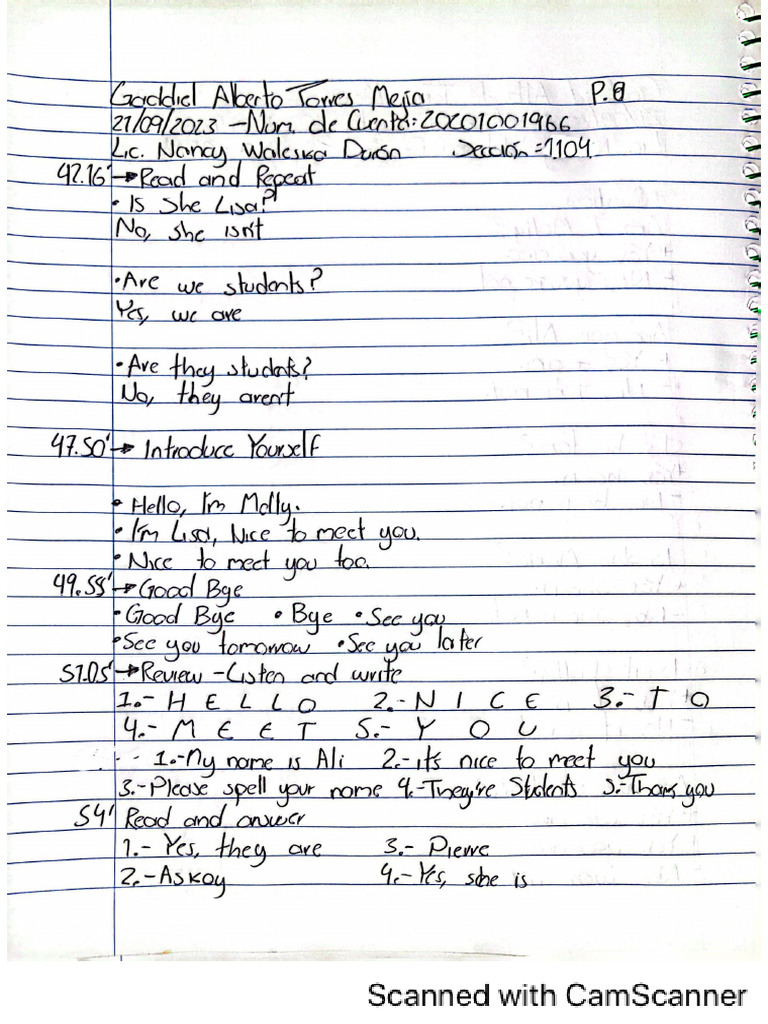 Gaddiel Alberto Torres Mejia P.8
21/09/2023 - Num. de Cuenta: 20201001966
Lic. Nancy Waleska Durón Sección = 1104
42.16' → Read and Repeat
• Is She Lisa?
No, she isn't
• Are we students?
Yes, we are
• Are they students?
No, they aren't
47.50' → Introduce Yourself
• Hello, I'm Molly.
• I'm Lisa, Nice to meet you.
• Nice to meet you too.
49.55' → Good Bye
• Good Bye • Bye • See you
• See you tomorrow • See you later
51.05' → Review - Listen and write
1.- H E L L O 2.- N I C E 3.- T O
4.- M E E T 5.- Y O U
1.- My name is Ali 2.- it's nice to meet you
3.- Please spell your name 4.- They're Students 5.- Thank you
54' Read and answer
1.- Yes, they are 3.- Pierre
2.- Askoy 4.- Yes, she is
Scanned with CamScanner